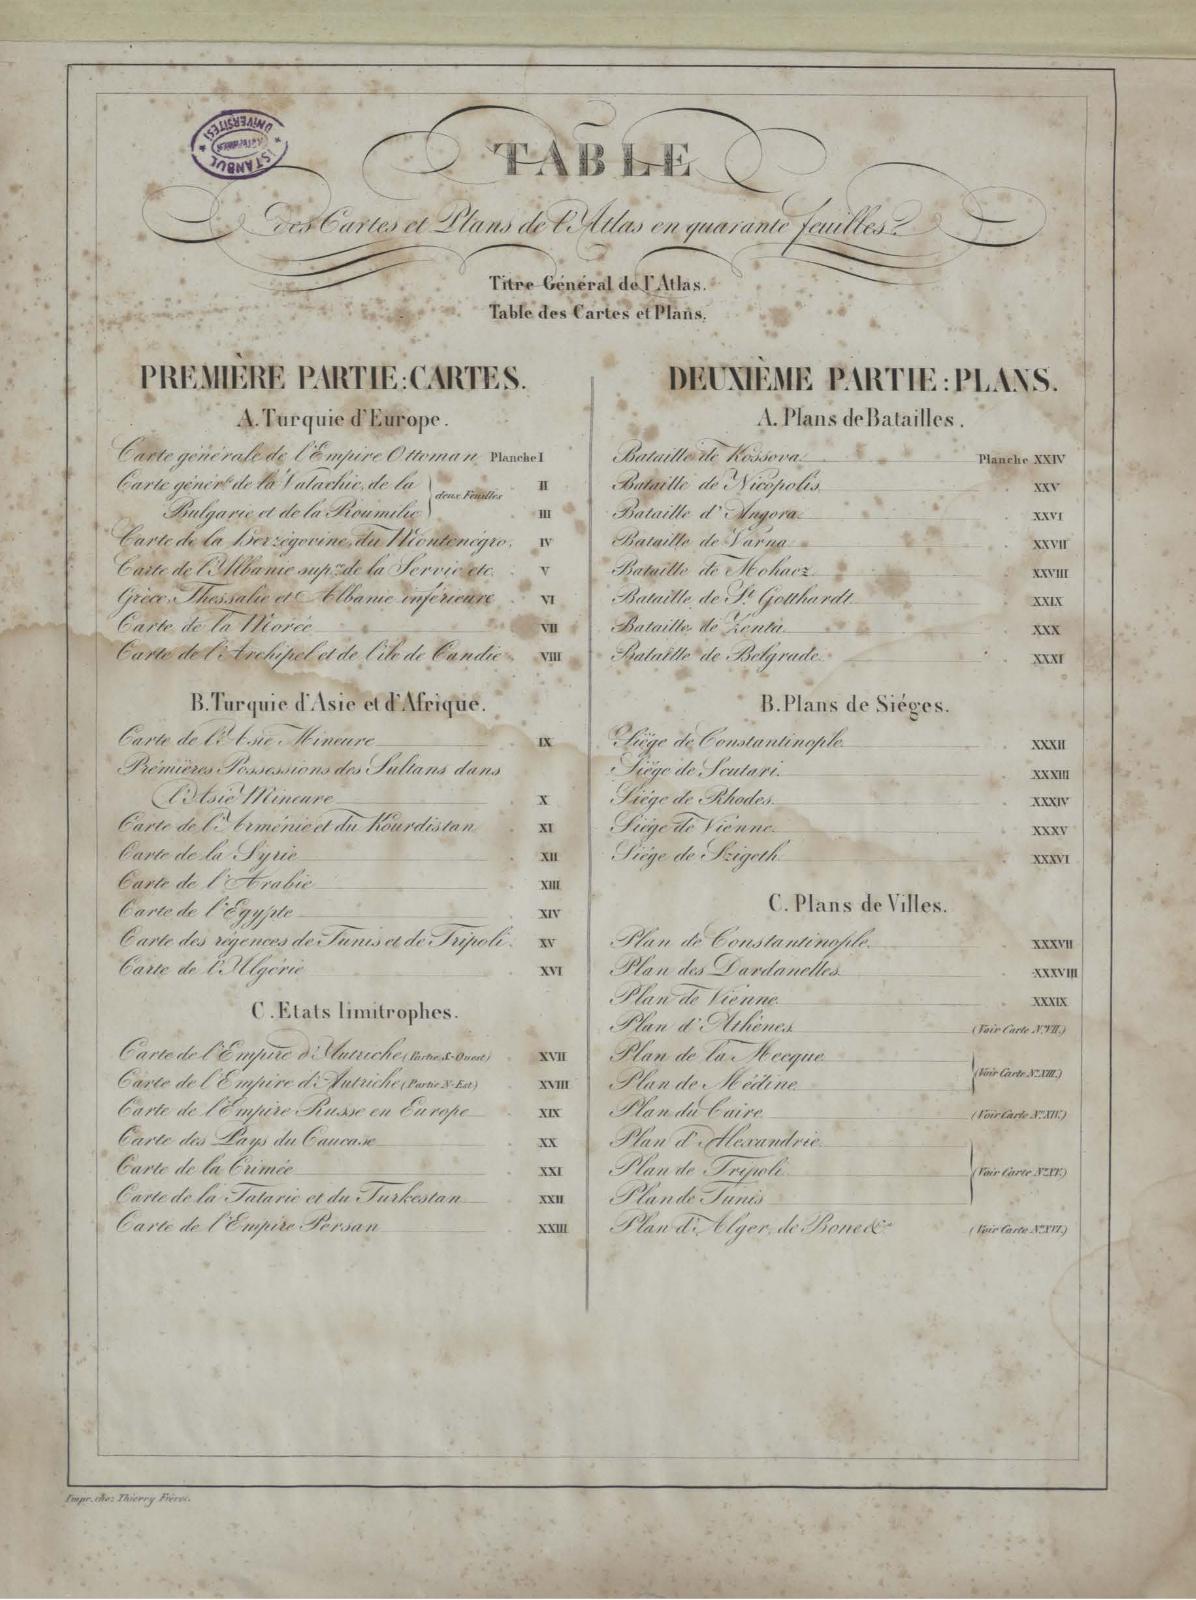 ISTANBUL ÜNİVERSİTESİ
TABLE
des Cartes et Plans de l'Atlas en quarante feuilles.
Titre Général de l'Atlas.
Table des Cartes et Plans.
PREMIÈRE PARTIE: CARTES.
A. Turquie d'Europe.
Carte générale de l'Empire Ottoman Planche I
Carte génér.le de la Valachie, de la II
deux Feuilles
Bulgarie et de la Roumilie III
Carte de la Herzégovine, du Montenégro. IV
Carte de l'Albanie sup.re de la Servie etc. V
Grèce, Thessalie et Albanie inférieure VI
Carte de la Morée VII
Carte de l'Archipel et de l'île de Candie VIII
B. Turquie d'Asie et d'Afrique.
Carte de l'Asie Mineure IX
Prémières Possessions des Sultans dans
l'Asie Mineure X
Carte de l'Arménie et du Kourdistan XI
Carte de la Syrie XII
Carte de l'Arabie XIII
Carte de l'Egypte XIV
Carte des régences de Tunis et de Tripoli. XV
Carte de l'Algérie XVI
C. Etats limitrophes.
Carte de l'Empire d'Autriche (Partie S-Ouest) XVII
Carte de l'Empire d'Autriche (Partie N-Est) XVIII
Carte de l'Empire Russe en Europe XIX
Carte des Pays du Caucase XX
Carte de la Crimée XXI
Carte de la Tatarie et du Turkestan XXII
Carte de l'Empire Persan XXIII
DEUXIÈME PARTIE: PLANS.
A. Plans de Batailles.
Bataille de Kossova Planche XXIV
Bataille de Nicopolis XXV
Bataille d'Angora XXVI
Bataille de Varna XXVII
Bataille de Mohacz XXVIII
Bataille de St. Gotthardt XXIX
Bataille de Zenta XXX
Bataille de Belgrade XXXI
B. Plans de Siéges.
Siège de Constantinople XXXII
Siège de Scutari XXXIII
Siège de Rhodes XXXIV
Siège de Vienne XXXV
Siège de Szigeth XXXVI
C. Plans de Villes.
Plan de Constantinople XXXVII
Plan des Dardanelles XXXVIII
Plan de Vienne XXXIX
Plan d'Athènes (Voir Carte N.º VII.)
Plan de la Mecque
(Voir Carte N.º XIII.)
Plan de Médine
Plan du Caire (Voir Carte N.º XIV.)
Plan d'Alexandrie
Plan de Tripoli (Voir Carte N.º XV.)
Plan de Tunis
Plan d'Alger, de Bone &.a (Voir Carte N.º XVI.)
Impr. chez Thierry Frères.